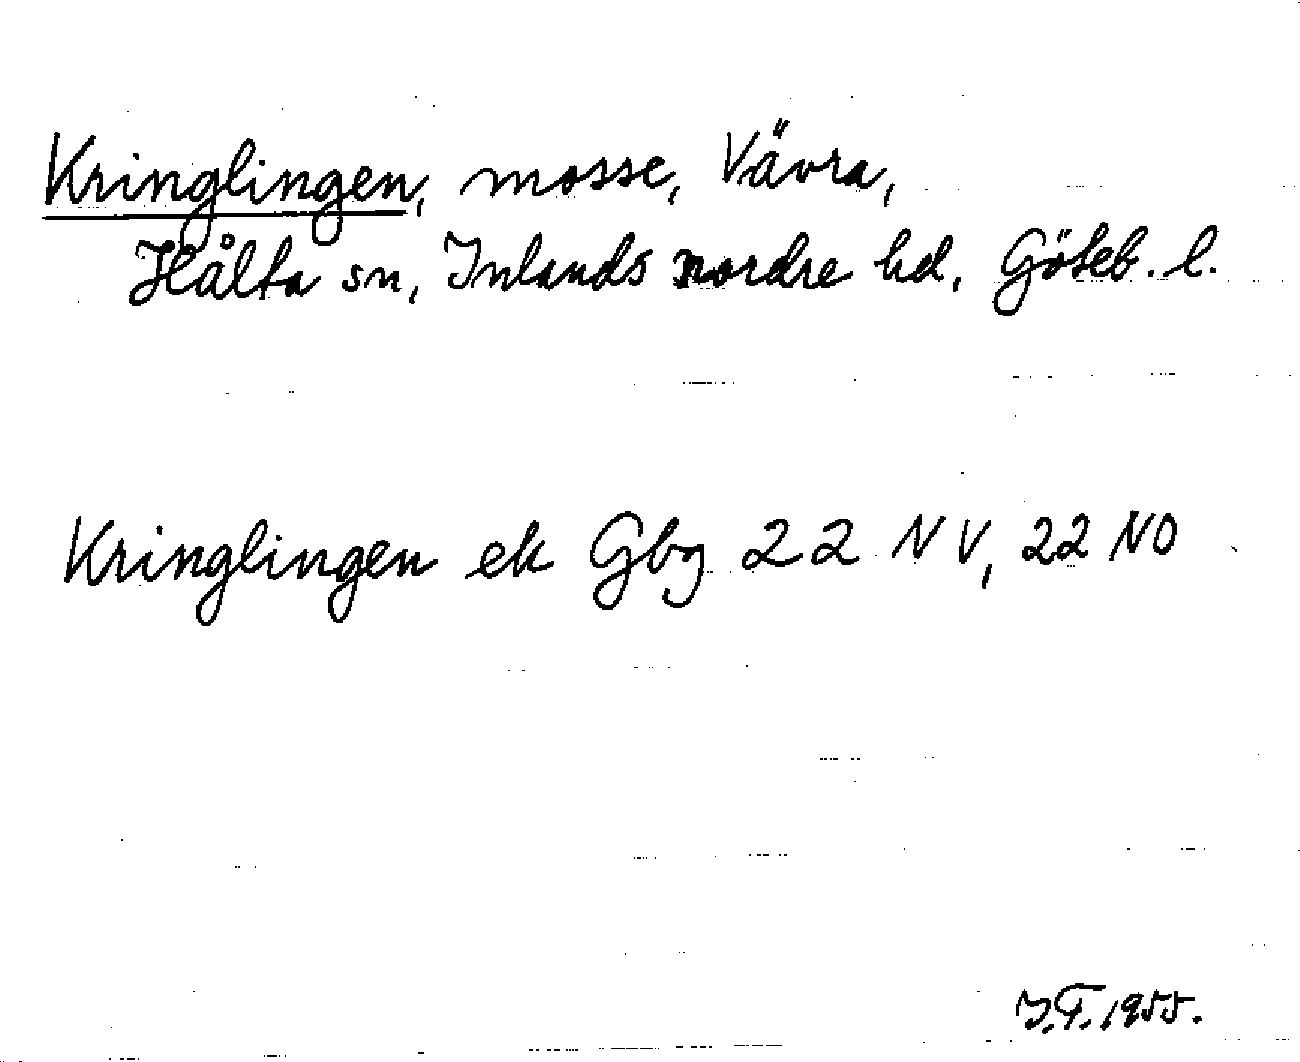 Kringlingen, mosse, Vävra,
Hålta sn, Inlands nordre hd, Göteb. l.
Kringlingen ek Gbg 22 NV, 22 NO
I.F. 1955.